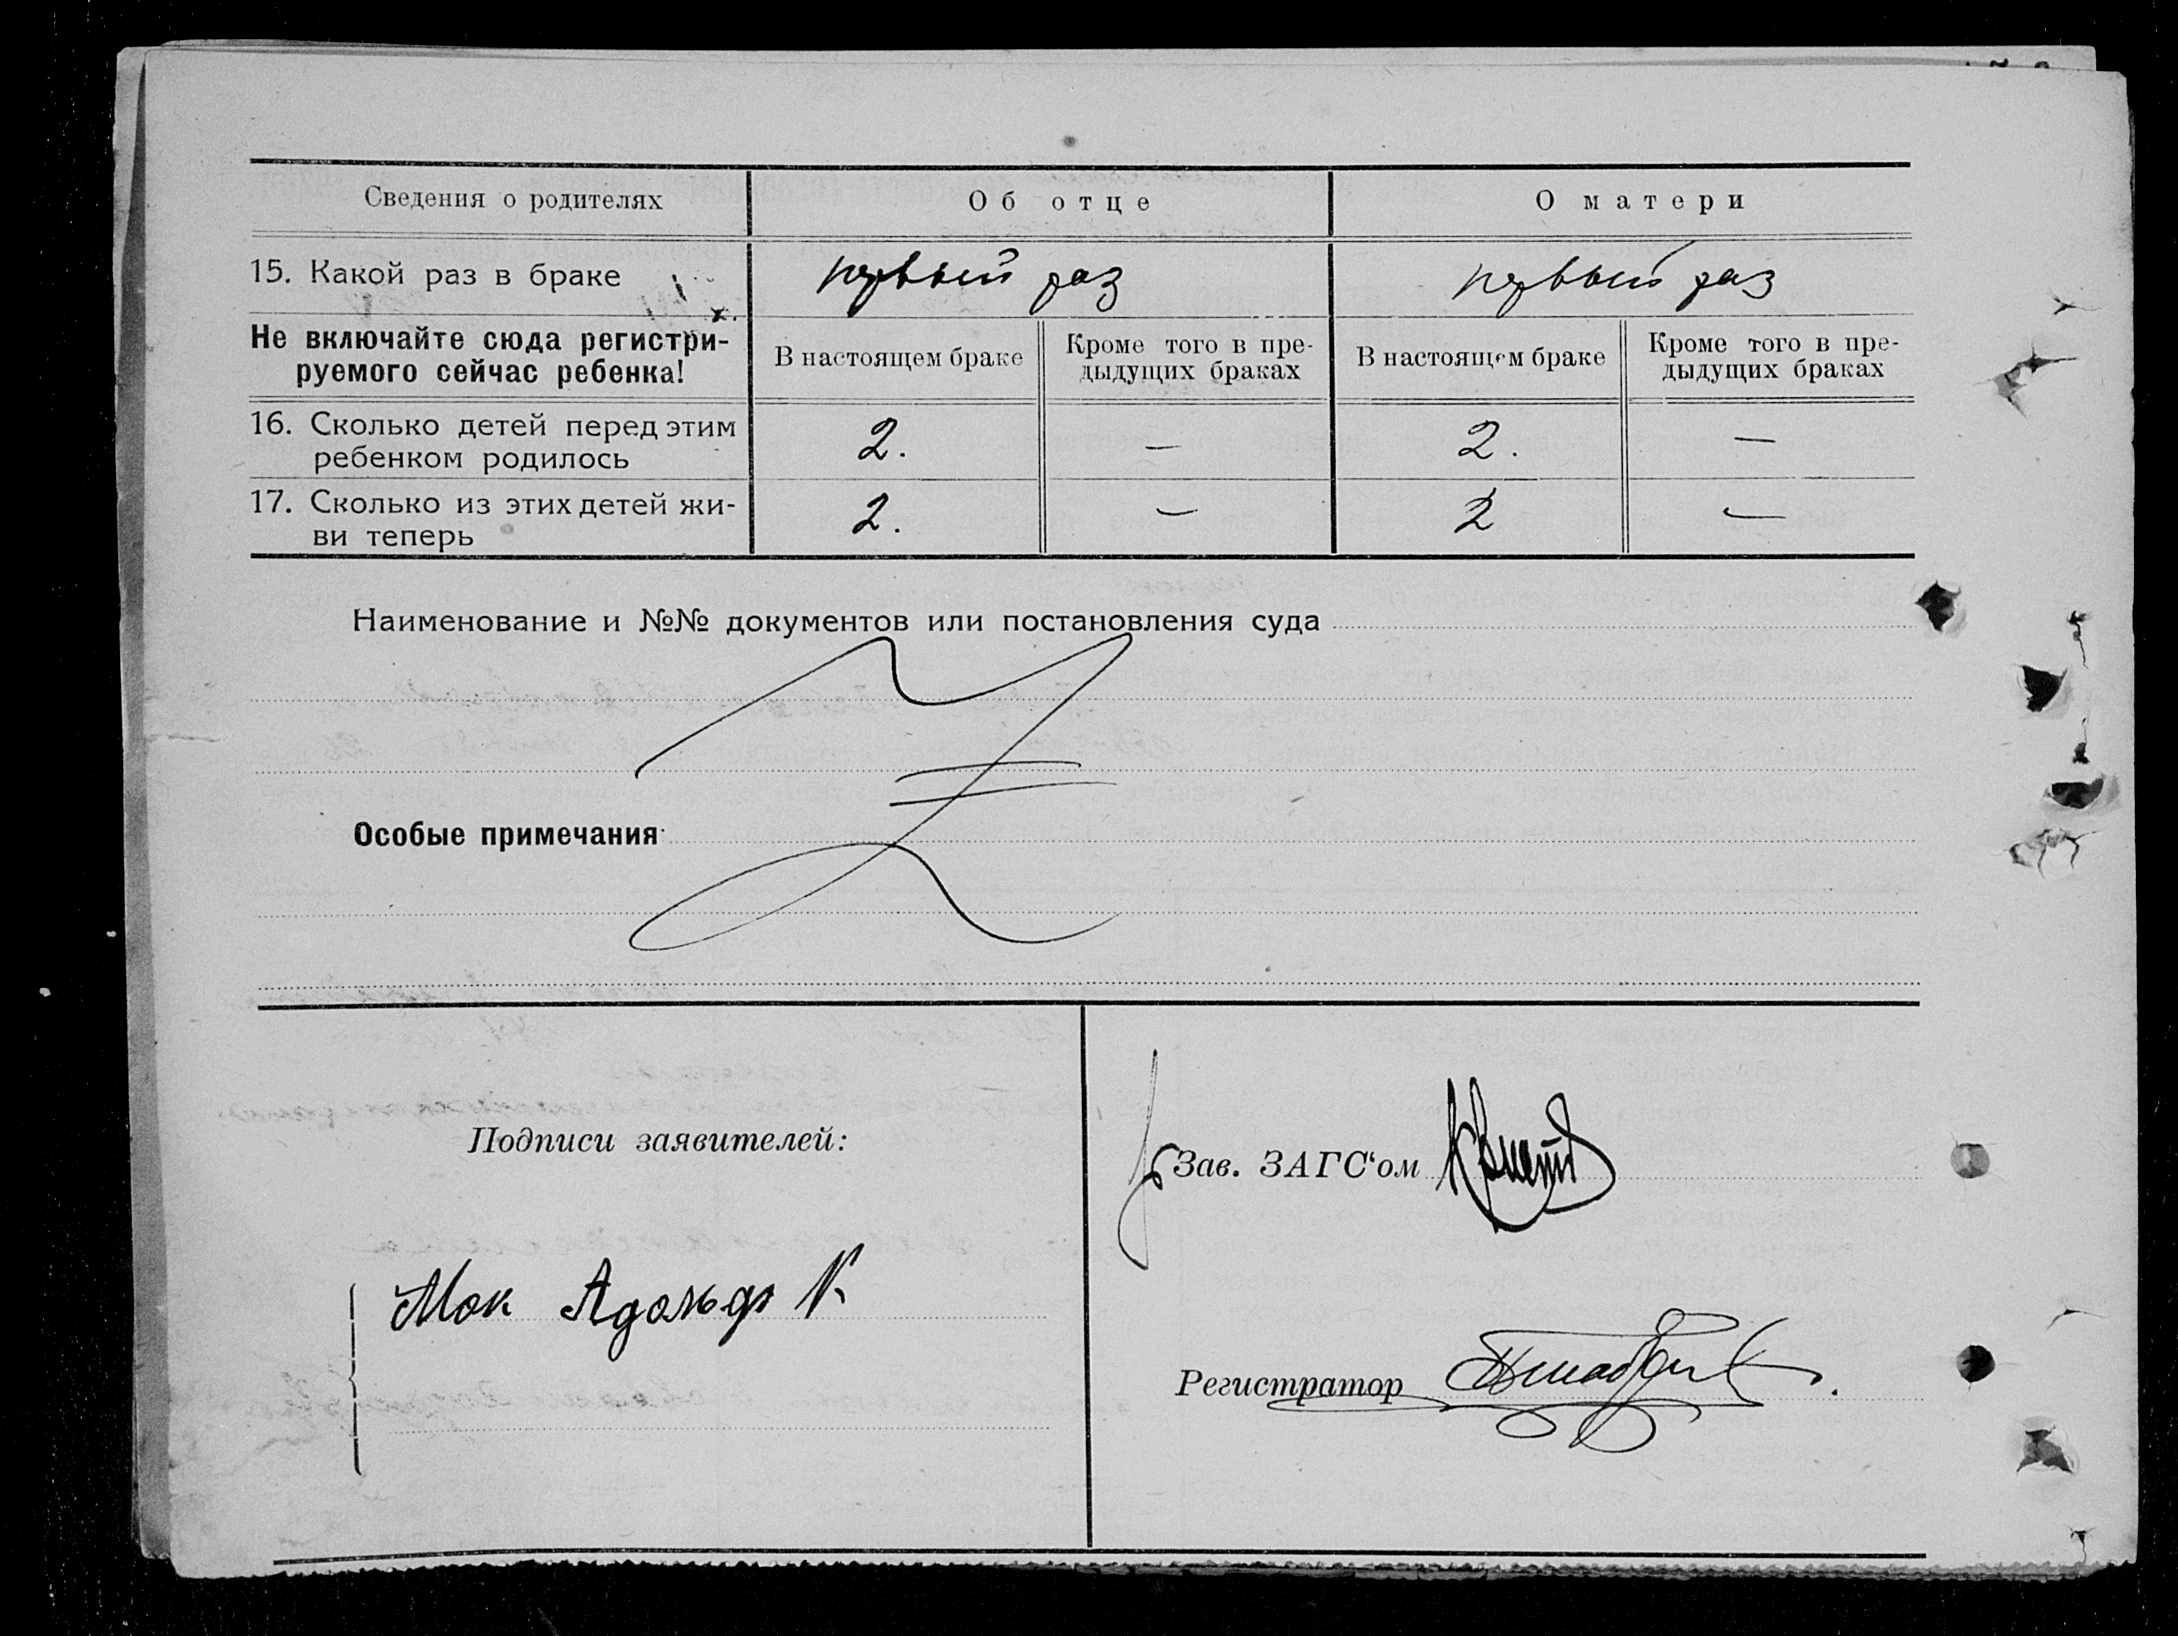 Сведения о родителях Об отце О матери
15. Какой раз в браке первый раз первый раз
Не включайте сюда регистри-
руемого сейчас ребенка!
В настоящем браке Кроме того в пре-
дыдущих браках
В настоящем браке Кроме того в пре-
дыдущих браках
16. Сколько детей перед этим
ребенком родилось
2. — 2. —
17. Сколько из этих детей жи-
ви теперь
2. — 2 —
Наименование и №№ документов или постановления суда
Особые примечания
Подписи заявителей:
Мок Адольф К
Зав. ЗАГС‘ом
Регистратор